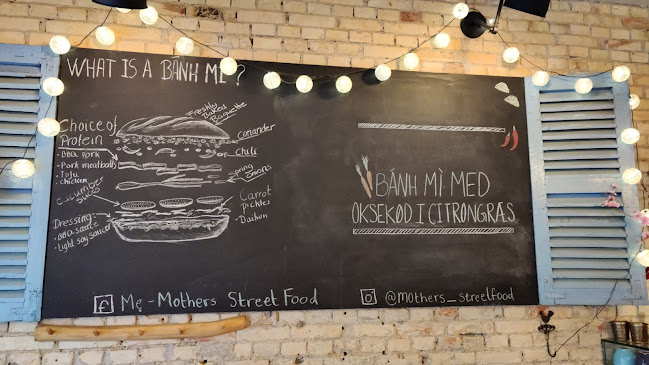 WHAT IS A BÁNH MÌ?
Freshly
Baked
Baguette
Choice of
Protein
• BBQ Pork
• Pork meatballs
• Tofu
• chicken
Coriander
Chili
Spring
onions
Cucumber
slices
Carrot
pickles
• Daikon
Dressing
• BBQ sauce
• Light soy sauce
BÁNH MÌ MED
OKSEKØD I CITRONGRÆS
Mẹ - Mothers Street Food
@mothers_streetfood